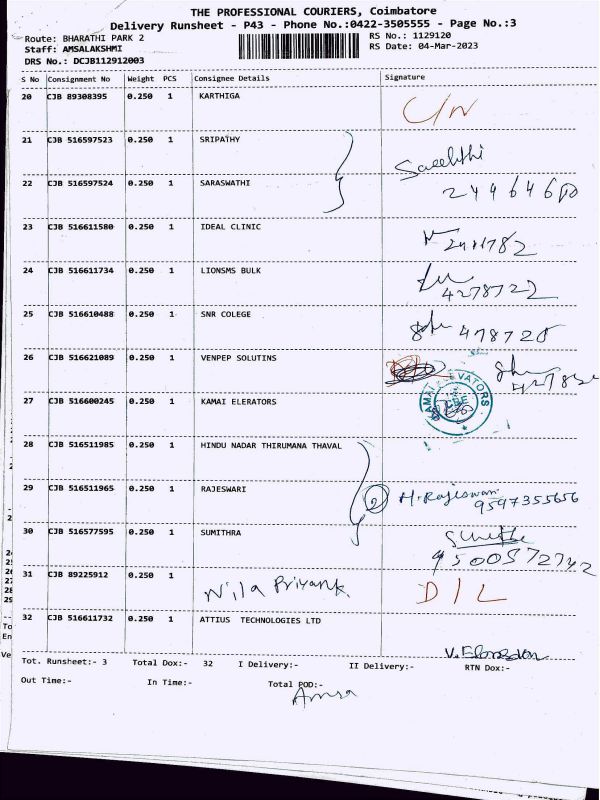 THE PROFESSIONAL COURIERS, Coimbatore
Delivery Runsheet - P43 - Phone No.:0422-3505555 - Page No.:3
Route: BHARATHI PARK 2
RS No.: 1129120
Staff: AMSALAKSHMI
RS Date: 04-Mar-2023
DRS No.: DCJB112912003
S No Consignment No Weight PCS Consignee Details Signature
20 CJB 89308395 0.250 1 KARTHIGA
21 CJB 516597523 0.250 1 SRIPATHY
22 CJB 516597524 0.250 1 SARASWATHI
23 CJB 516611580 0.250 1 IDEAL CLINIC
24 CJB 516611734 0.250 1 LIONSMS BULK
4278722
25 CJB 516610488 0.250 1 SNR COLEGE
478720
26 CJB 516621089 0.250 1 VENPEP SOLUTINS
27 CJB 516600245 0.250 1 KAMAI ELERATORS
28 CJB 516511985 0.250 1 HINDU NADAR THIRUMANA THAVAL
29 CJB 516511965 0.250 1 RAJESWARI 2 H. Rajeswari
9597355656
30 CJB 516577595 0.250 1 SUMITHRA
9500572742
31 CJB 89225912 0.250 1 Nila Priyank D/L
32 CJB 516611732 0.250 1 ATTIUS TECHNOLOGIES LTD
Tot. Runsheet:- 3 Total Dox:- 32 I Delivery:- II Delivery:- RTN Dox:-
Out Time:- In Time:- Total POD:-
Amsa